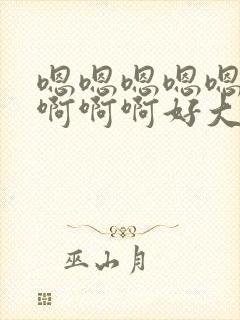 嗯嗯嗯嗯嗯
啊啊啊好大
巫山月